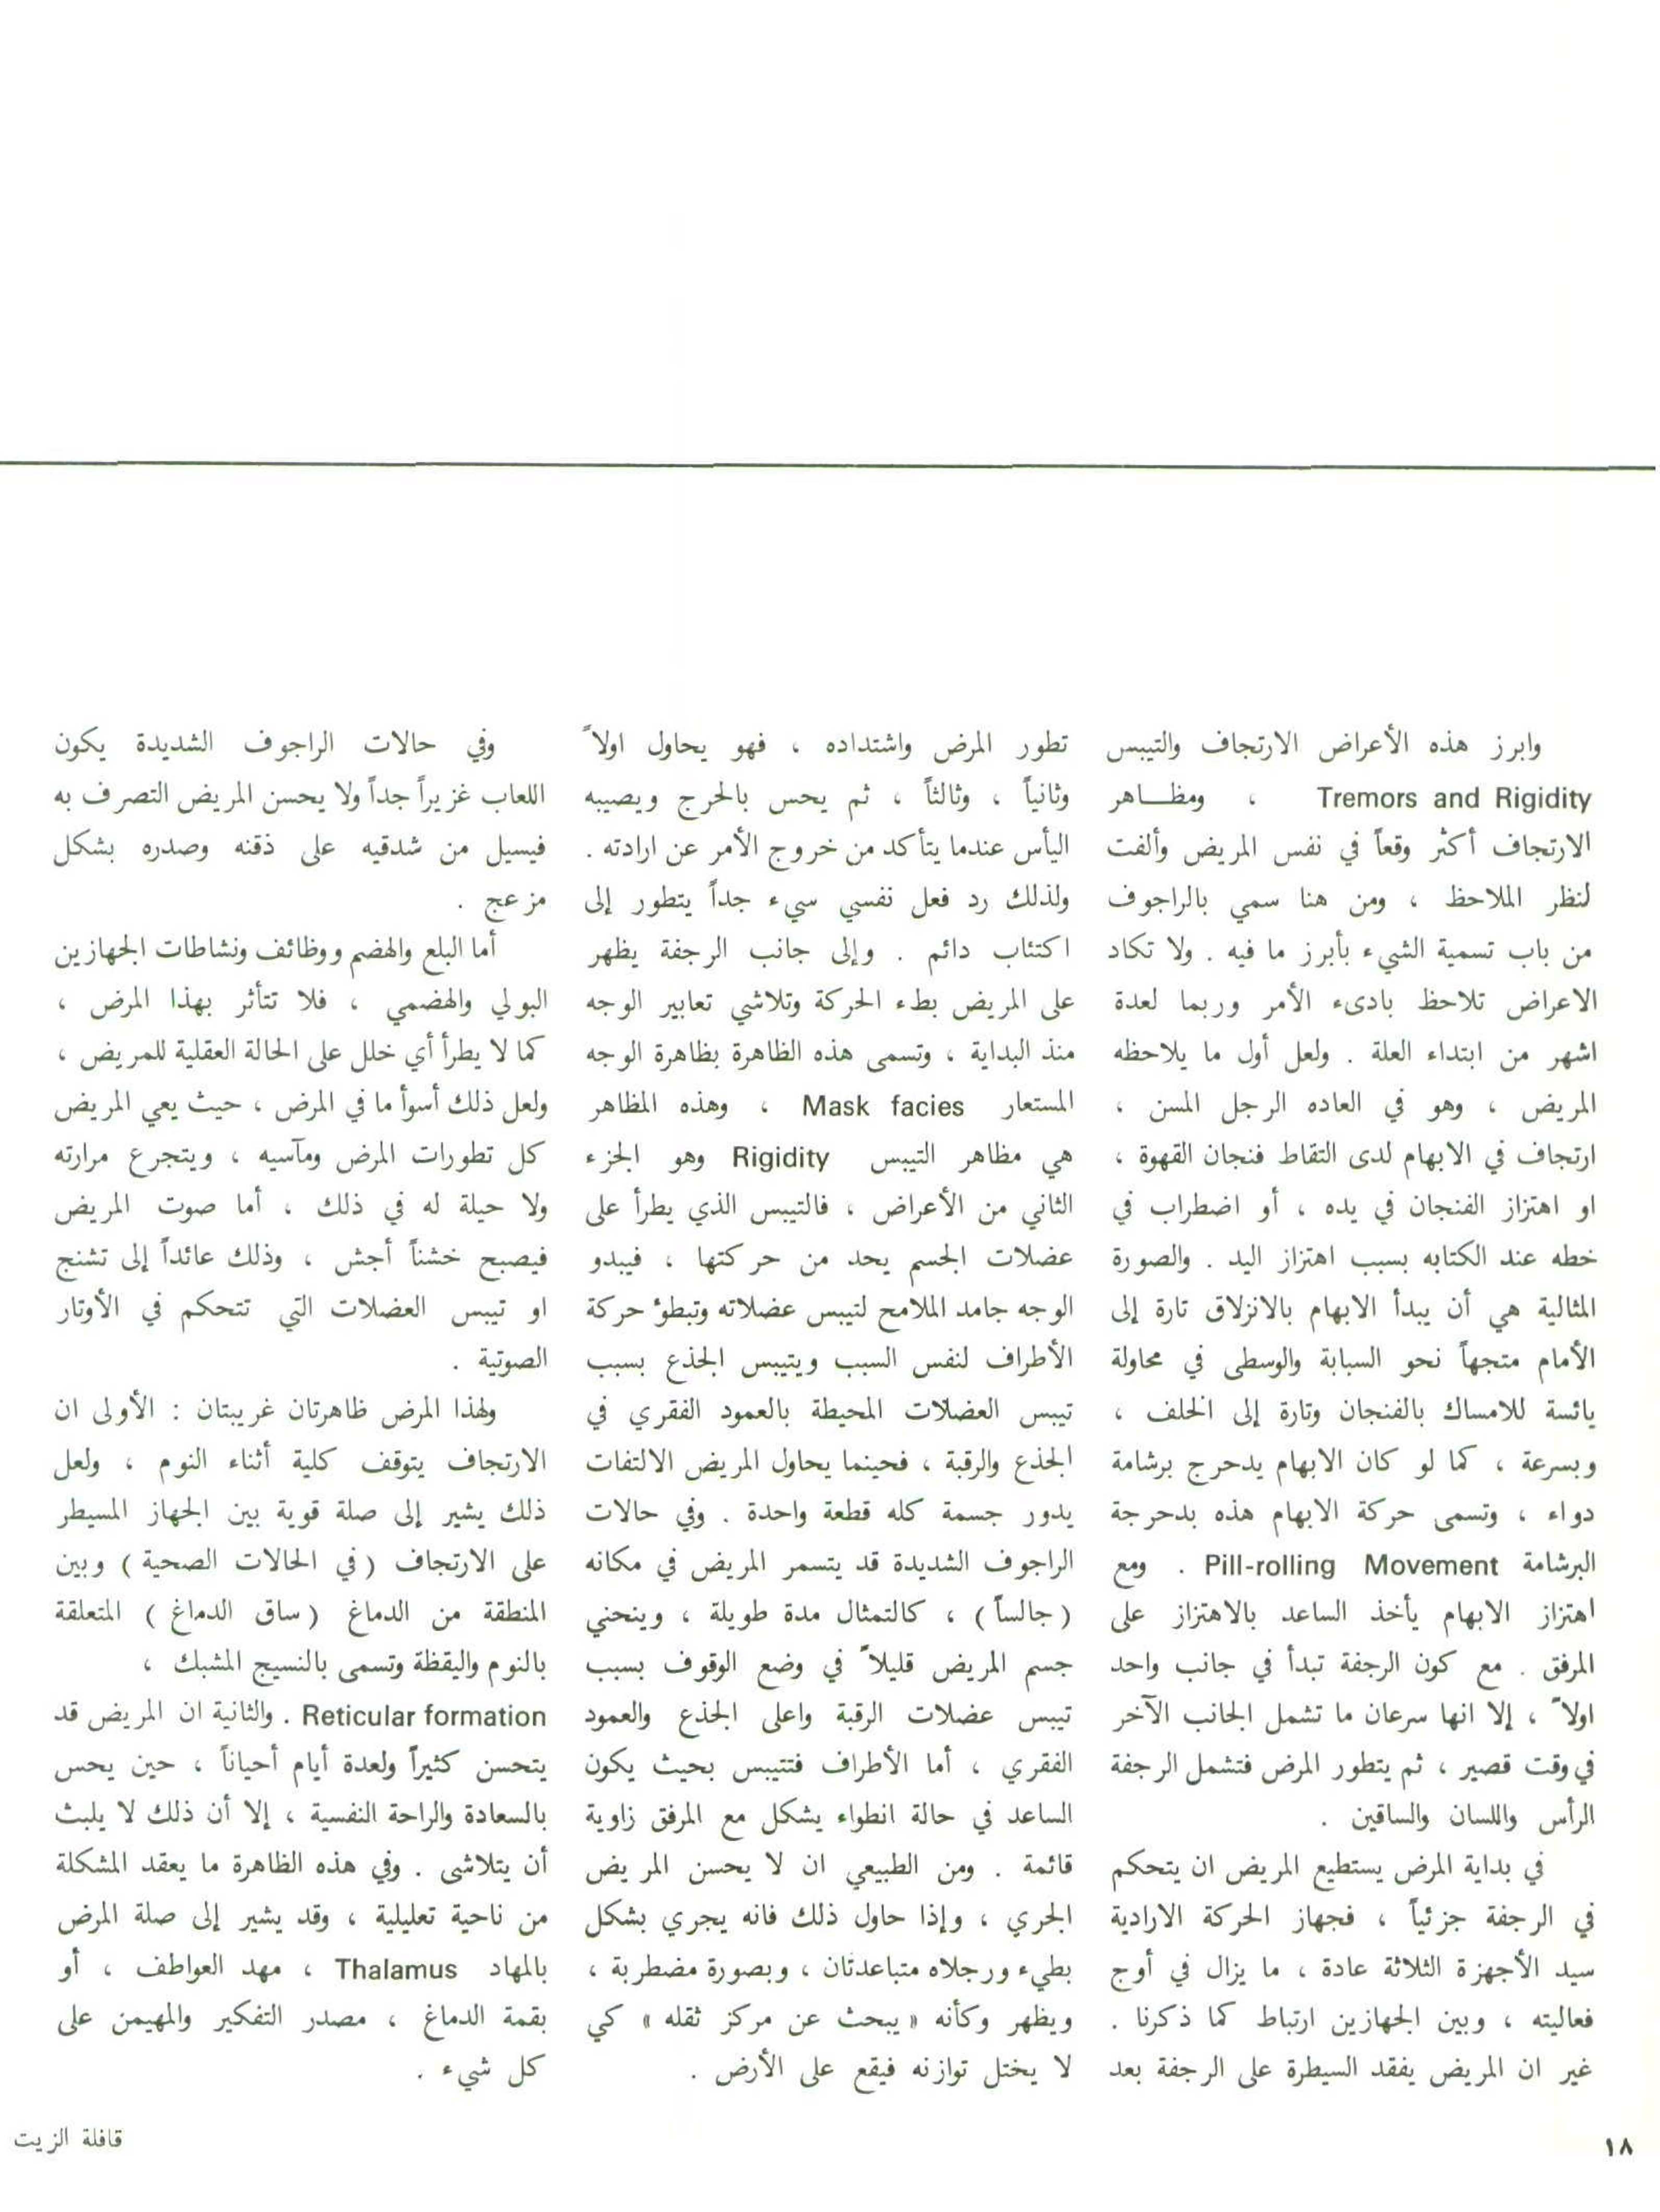 وابرز هذه الأعراض الارتجاف والتيبس
Tremors and Rigidity ، ومظــاهر
الارتجاف أكثر وقعاً في نفس المريض وألفت
لنظر الملاحظ ، ومن هنا سمي بالراجوف
من باب تسمية الشيء بأبرز ما فيه . ولا تكاد
الاعراض تلاحظ بادىء الأمر وربما لعدة
اشهر من ابتداء العلة . ولعل أول ما يلاحظه
المريض ، وهو في العاده الرجل المسن ،
ارتجاف في الابهام لدى التقاط فنجان القهوة ،
او اهتزاز الفنجان في يده ، أو اضطراب في
خطه عند الكتابه بسبب اهتزاز اليد . والصورة
المثالية هي أن يبدأ الابهام بالانزلاق تارة إلى
الأمام متجهاً نحو السبابة والوسطى في محاولة
يائسة للامساك بالفنجان وتارة إلى الخلف ،
وبسرعة ، كما لو كان الابهام يدحرج برشامة
دواء ، وتسمى حركة الابهام هذه بدحرجة
البرشامة Pill-rolling Movement . ومع
اهتزاز الابهام يأخذ الساعد بالاهتزاز على
المرفق . مع كون الرجفة تبدأ في جانب واحد
اولاً ، إلا انها سرعان ما تشمل الجانب الآخر
في وقت قصير ، ثم يتطور المرض فتشمل الرجفة
الرأس واللسان والساقين .
في بداية المرض يستطيع المريض ان يتحكم
في الرجفة جزئياً ، فجهاز الحركة الارادية
سيد الأجهزة الثلاثة عادة ، ما يزال في أوج
فعاليته ، وبين الجهازين ارتباط كما ذكرنا .
غير ان المريض يفقد السيطرة على الرجفة بعد
تطور المرض واشتداده ، فهو يحاول اولاً
وثانياً ، وثالثاً ، ثم يحس بالحرج ويصيبه
اليأس عندما يتأكد من خروج الأمر عن ارادته .
ولذلك رد فعل نفسي سيء جداً يتطور إلى
اكتئاب دائم . وإلى جانب الرجفة يظهر
على المريض بطء الحركة وتلاشي تعابير الوجه
منذ البداية ، وتسمى هذه الظاهرة بظاهرة الوجه
المستعار Mask facies ، وهذه المظاهر
هي مظاهر التيبس Rigidity وهو الجزء
الثاني من الأعراض ، فالتيبس الذي يطرأ على
عضلات الجسم يحد من حركتها ، فيبدو
الوجه جامد الملامح لتيبس عضلاته وتبطؤ حركة
الأطراف لنفس السبب ويتيبس الجذع بسبب
تيبس العضلات المحيطة بالعمود الفقري في
الجذع والرقبة ، فحينما يحاول المريض الالتفات
يدور جسمة كله قطعة واحدة . وفي حالات
الراجوف الشديدة قد يتسمر المريض في مكانه
( جالساً ) ، كالتمثال مدة طويلة ، وينحني
جسم المريض قليلاً في وضع الوقوف بسبب
تيبس عضلات الرقبة واعلى الجذع والعمود
الفقري ، أما الأطراف فتتيبس بحيث يكون
الساعد في حالة انطواء يشكل مع المرفق زاوية
قائمة . ومن الطبيعي ان لا يحسن المريض
الجري ، وإذا حاول ذلك فانه يجري بشكل
بطيء ورجلاه متباعدتان ، وبصورة مضطربة ،
ويظهر وكأنه « يبحث عن مركز ثقله » كي
لا يختل توازنه فيقع على الأرض .
وفي حالات الراجوف الشديدة يكون
اللعاب غزيراً جداً ولا يحسن المريض التصرف به
فيسيل من شدقيه على ذقنه وصدره بشكل
مزعج .
أما البلع والهضم ووظائف ونشاطات الجهازين
البولي والهضمي ، فلا تتأثر بهذا المرض ،
كما لا يطرأ أي خلل على الحالة العقلية للمريض ،
ولعل ذلك أسوأ ما في المرض ، حيث يعي المريض
كل تطورات المرض ومآسيه ، ويتجرع مرارته
ولا حيلة له في ذلك ، أما صوت المريض
فيصبح خشناً أجش ، وذلك عائداً إلى تشنج
او تيبس العضلات التي تتحكم في الأوتار
الصوتية .
ولهذا المرض ظاهرتان غريبتان : الأولى ان
الارتجاف يتوقف كلية أثناء النوم ، ولعل
ذلك يشير إلى صلة قوية بين الجهاز المسيطر
على الارتجاف ( في الحالات الصحية ) وبين
المنطقة من الدماغ ( ساق الدماغ ) المتعلقة
بالنوم واليقظة وتسمى بالنسيج المشبك ،
Reticular formation . والثانية ان المريض قد
يتحسن كثيراً ولعدة أيام أحياناً ، حين يحس
بالسعادة والراحة النفسية ، إلا أن ذلك لا يلبث
أن يتلاشى . وفي هذه الظاهرة ما يعقد المشكلة
من ناحية تعليلية ، وقد يشير إلى صلة المرض
بالمهاد Thalamus ، مهد العواطف ، أو
بقمة الدماغ ، مصدر التفكير والمهيمن على
كل شيء .
١٨
قافلة الزيت